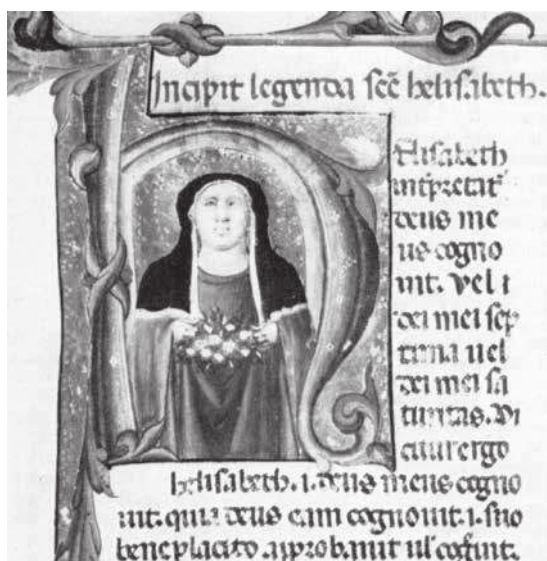 Incipit legenda scē helisabeth.
Elisabeth
intpretatʳ
deus me
us cogno
uit. vel i
dei mei sep
tima uel
dei mei sa
turitas. Di
citur ergo
helisabeth. i. deus meus cogno
uit. quia deus eam cognouit. i. suo
beneplacito approbauit ul' cognouit.